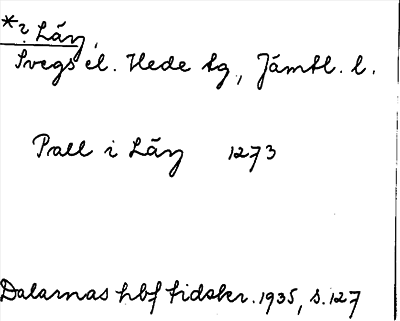 *? Läṇ,
Svegs el. Hede tg, Jämtl. l.
Pall i Läṇ 1273
Dalarnas hbf tidskr. 1935, s. 127